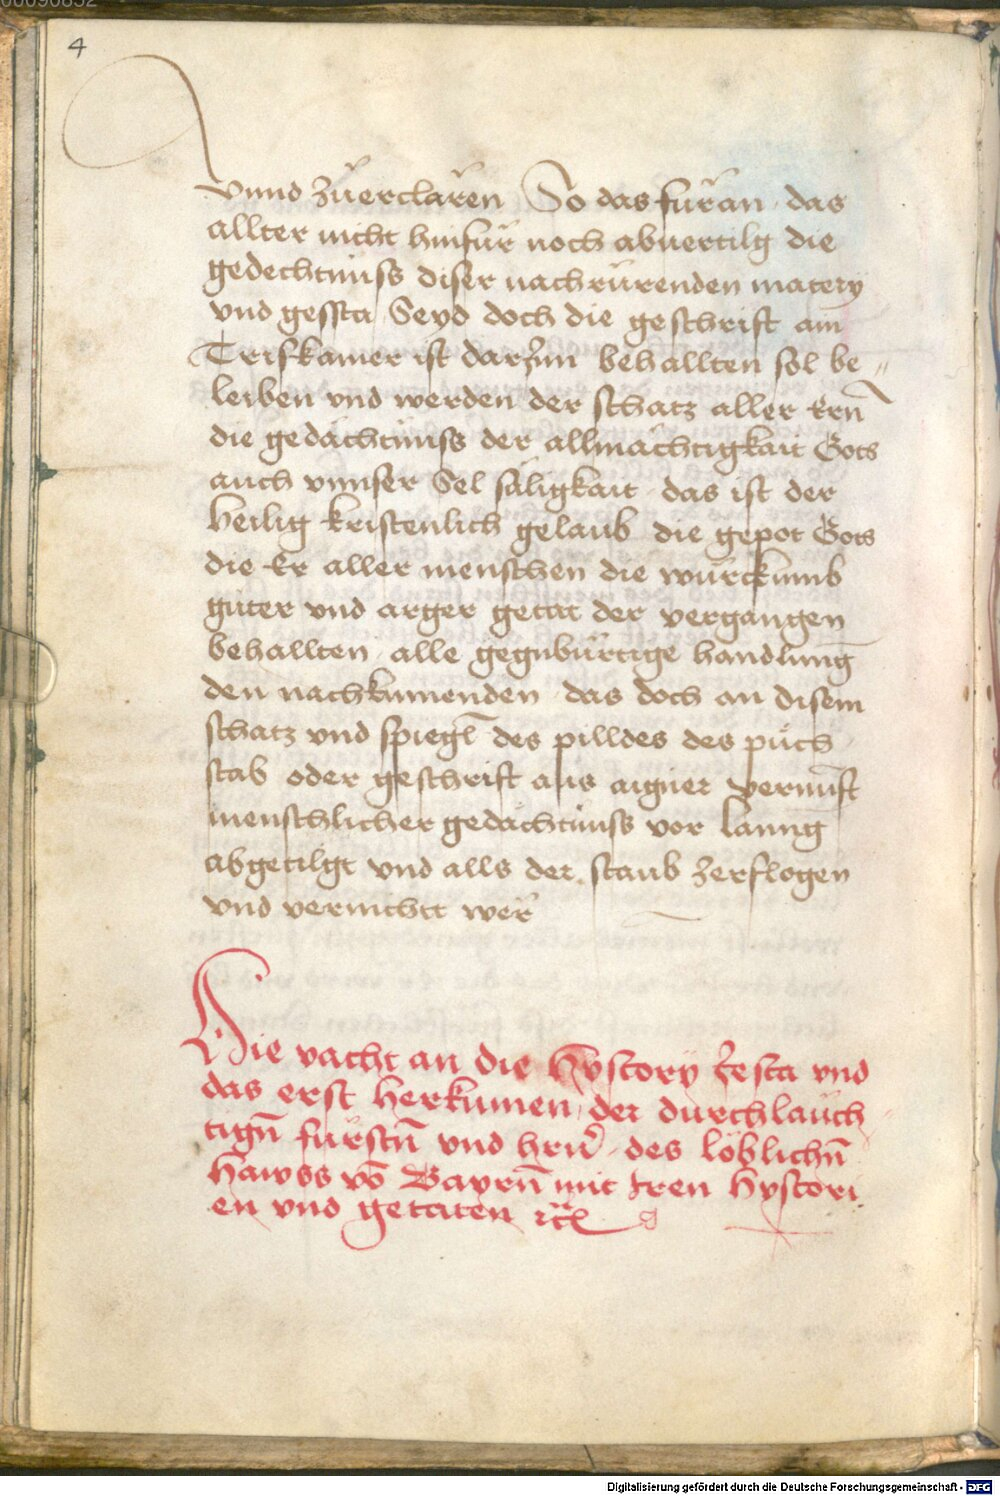 4
vnnd zuerclaren So das furan das
allter nicht hinfur noch abuertilg die
gedechtnuss diser nachrürenden matery
vnd gessta Seyd doch die geschrift ain
Triskamer ist darzinn behallten sol be
leiben vnd werden der schatz aller ern
die gedächtnuss der allmächtigkait Gots
auch vnnser Sel säligkait das ist der
heilig kristenlich gelaub die gepot Gots
die Er aller menschen die würckunnb
guter vnd arger getat der vergangen
behallten alle gegnbürtige handlung
den nachkumenden das doch an disem
schatz vnd spiegl des pilldes des puch
stab oder geschrift aus aigner vernunft
menschlicher gedächtnuss vor lanng
abgetilgt vnd alls der staub zerflogen
vnd vernichtt wer
Hie vacht an die hystory Jesta vnd
das erst herkumen der durchlauch
tign fürstn vnd hrn des löblichn
hawss vo Bayrn mit iren hystori
en vnd getaten etc
Digitalisierung gefördert durch die Deutsche Forschungsgemeinschaft - DFG